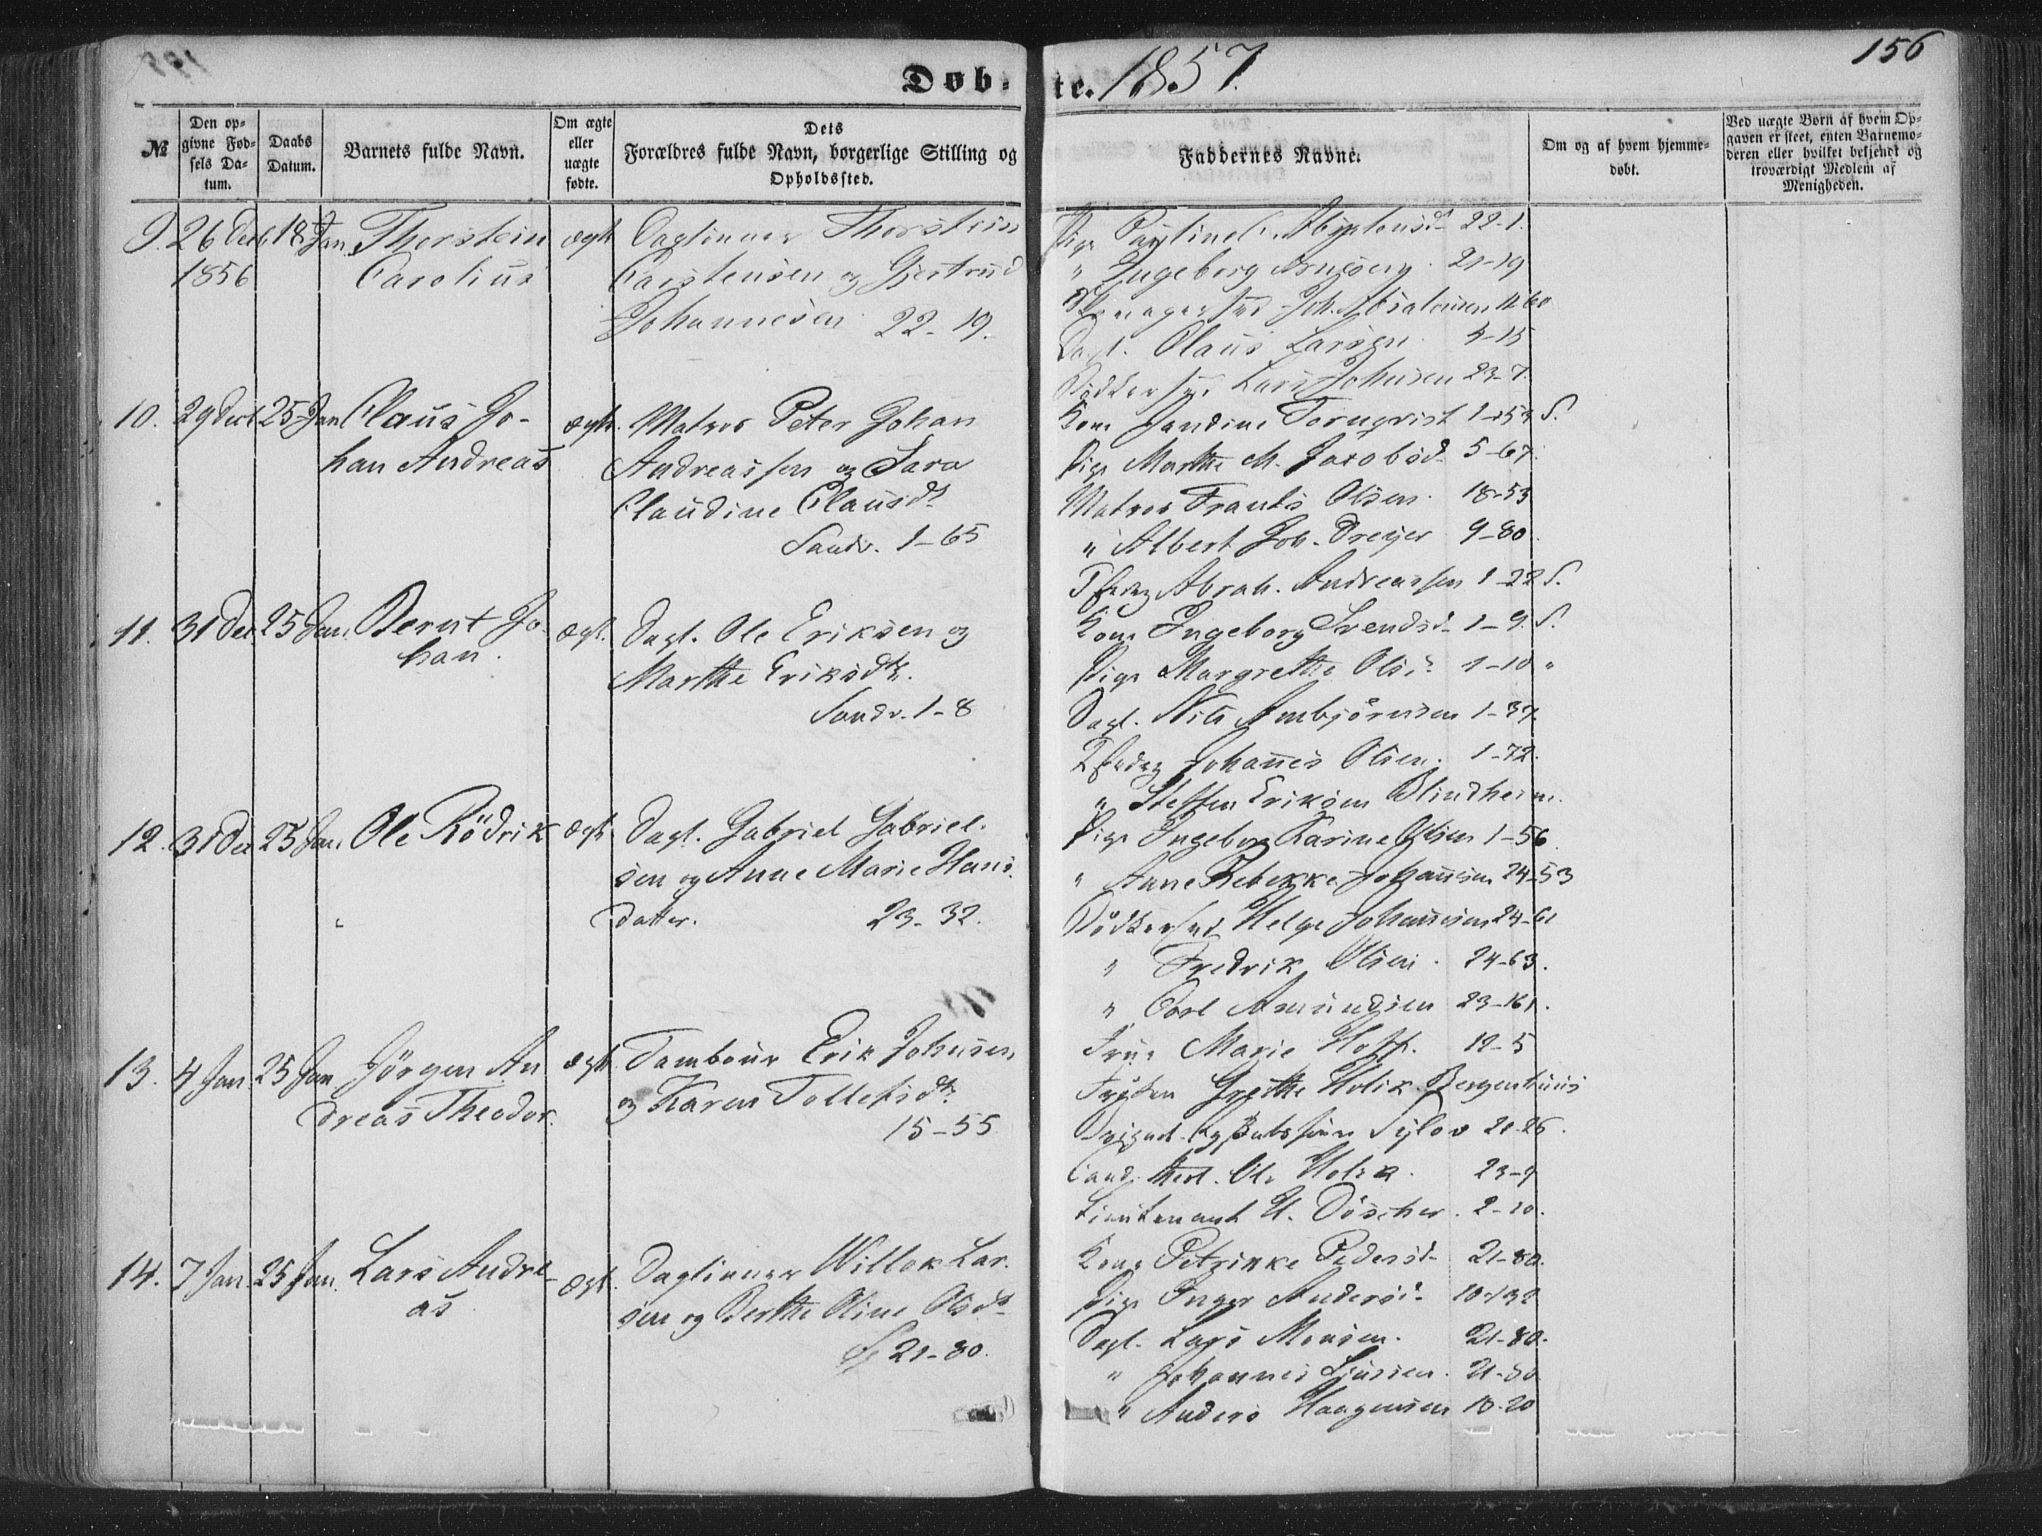 Døbte. 1857.
156
№
Den opgivne Fødsels Datum.
Daabs Datum.
Barnets fulde Navn.
Om ægte eller uægte fødte.
Dets Forældres fulde Navn, borgerlige Stilling og Opholdssted.
Faddernes Navne.
Om og af hvem hjemmedøbt.
Ved uægte Børn af hvem Opgaven er skeet, enten Barnemoderen eller hvilket bekjendt og troværdigt Medlem af Menigheden.
9. 26 Dec 18 Jan. Thorstein ægte Daglinner Thorstein
1856 Carolius Carstensen og Gjertrud
Johannesen 22-19.
Pige Pauline 22-1.
" Ingeborg 21-19
Joh. 11-60
Dagl. Olaus Larsen 4-15
Lars Johnsen 23-7.
10. 29 Dec 25 Jan Claus Jo- ægte. Matros Peter Johan
han Andreas Andreassen og Sara
Claudine Clausdt.
Sandv. 1-65
Kone Jandine Tornqvist 1-153 S.
Pige Marthe M. Jacobsd 5-67.
Matros Frants Olsen. 18-53
" Albert Joh. Dreyer 9-80.
Abrah. Andreassen 1-22 S.
11. 31 Dec. 25 Jan. Bernt Jo- ægt. Dagl. Ole Eriksen og
han. Marthe Eriksdtr.
Sandv. 1-8
Kone Ingeborg Svendsd. 1-9. S.
Pige Margrethe Olsd. 1-10 "
Dagl. Nils Ambjørnsen 1-37.
Johannes Olsen. 1-72.
" Steffen Eriksen Blindheim.
12. 31 Dec 25 Jan. Ole Rødrik ægte Dagl. Gabriel Gabriel-
sen og Anne Marie Hans-
datter. 23-32.
Pige Ingeborg Karine Olsen 1-56.
" Anne Rebekke Johannesen 24-53
Bødkersvd Helge Johannesen 24-61
" Fredrik Olsen. 24-63.
" Carl Amundsen 23-161.
13. 4 Jan. 25 Jan Jørgen An- ægte Tambour Erik Johnsen
dreas Theodor. og Karen Tollefsdtr.
15-55
Frue Marie Hoff. 19-5
Frøken Grethe Holck.
Sylow 21-26.
Cand. theol. Ole Holck. 23-9
Lieutenant H. Döscher. 2-20.
14. 7 Jan. 25 Jan. Lars Andre- ægt. Daglinner Willok Lar-
as sen og Berthe Oline Olsdtr
21-80.
Kone Petrikke Pedersd. 21-80.
Pige Inger Andersd. 10-132
Dagl. Lars Monsen. 21-80.
" Johannes 21-80
" Anders Haagensen 18-20